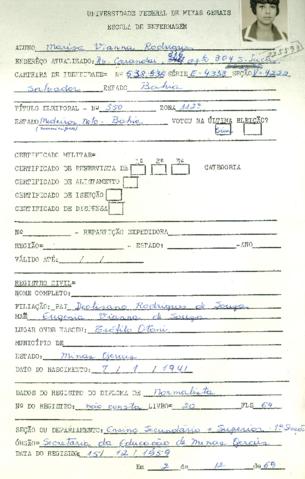 UNIVERSIDADE FEDERAL DE MINAS GERAIS
ESCOLA DE ENFERMAGEM
ALUNO Marisa Vianna Rodrigues
ENDEREÇO ATUALIZADO: Av. Carandaí, apt 804
CARTEIRA DE IDENTIDADE= Nº 538.535 SÉRIE E-4338 SEÇÃO V-4222
Salvador ESTADO Bahia
TÍTULO ELEITORAL - Nº 550 ZONA 112ª
ESTADO Medeiros Neto - Bahia VOTOU NA ÚLTIMA ELEIÇÃO?
Sim
CERTIFICADO MILITAR=
1ª 2ª 3ª
CERTIFICADO DE RESERVISTA DE CATEGORIA
CERTIFICADO DE ALISTAMENTO
CERTIFICADO DE ISENÇÃO
CERTIFICADO DE DISPENSA
Nº - REPARTIÇÃO EXPEDIDORA
REGIÃO= - ESTADO: -ANO
VÁLIDO ATÉ / /
REGISTRO CIVIL=
NOME COMPLETO:
FILIAÇÃO: PAI Deolisano Rodrigues de Souza
MÃE Eugenia Vianna de Souza
LUGAR ONDE NASCEU: Teófilo Otoni
MUNICÍPIO DE
ESTADO: Minas Gerais
DATA DO NASCIMENTO: 7 / 1 / 1941
DADOS DO REGISTRO DO DIPLOMA DE Normalista
Nº DO REGISTRO: não consta LIVRO= 20 FLS 69
SEÇÃO OU DEPARTAMENTO: Ensino Secundário e Superior - 1ª Seção
ÓRGÃO= Secretaria da Educação de Minas Gerais
DATA DO REGISTRO= 15 / 12 / 1959
Em 2 de 12 de 69